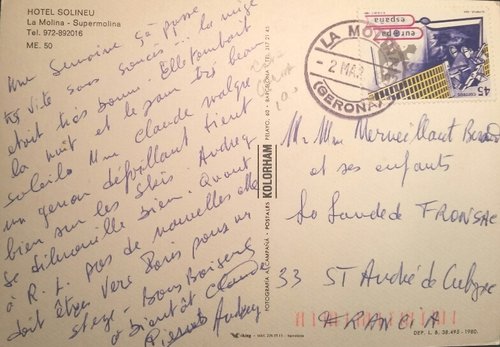 HOTEL SOLINEU
La Molina - Supermolina
Tel. 972-892016
ME. 50
Une Semaine ça passe
très vite sans soucis... la neige
était très bonne. Elle tombait
la nuit et le jour très beau
soleil. Mme Claude malgré
un genou défaillant tient
bien sur les skis. Audrey
se débrouille bien. Quant
à R. L. pas de nouvelles elle
doit être vers Paris pour un
stage - Bons Baisers
à bientôt Claude
Pierrot Audrey
FOTOGRAFIA, CAMPAÑA - POSTALES KOLORHAM PELAYO, 40 - BARCELONA - TEL. 317 21 43
viking
LA MOLINA
- 2 MAR
(GERONA)
europa
españa
45
CORREOS
Mr. Mme Merveillaut
et ses enfants
La Lande de FRONSAC
33 ST André de Cubzac
FRANCIA
DEP. L. B. 38.495 - 1980